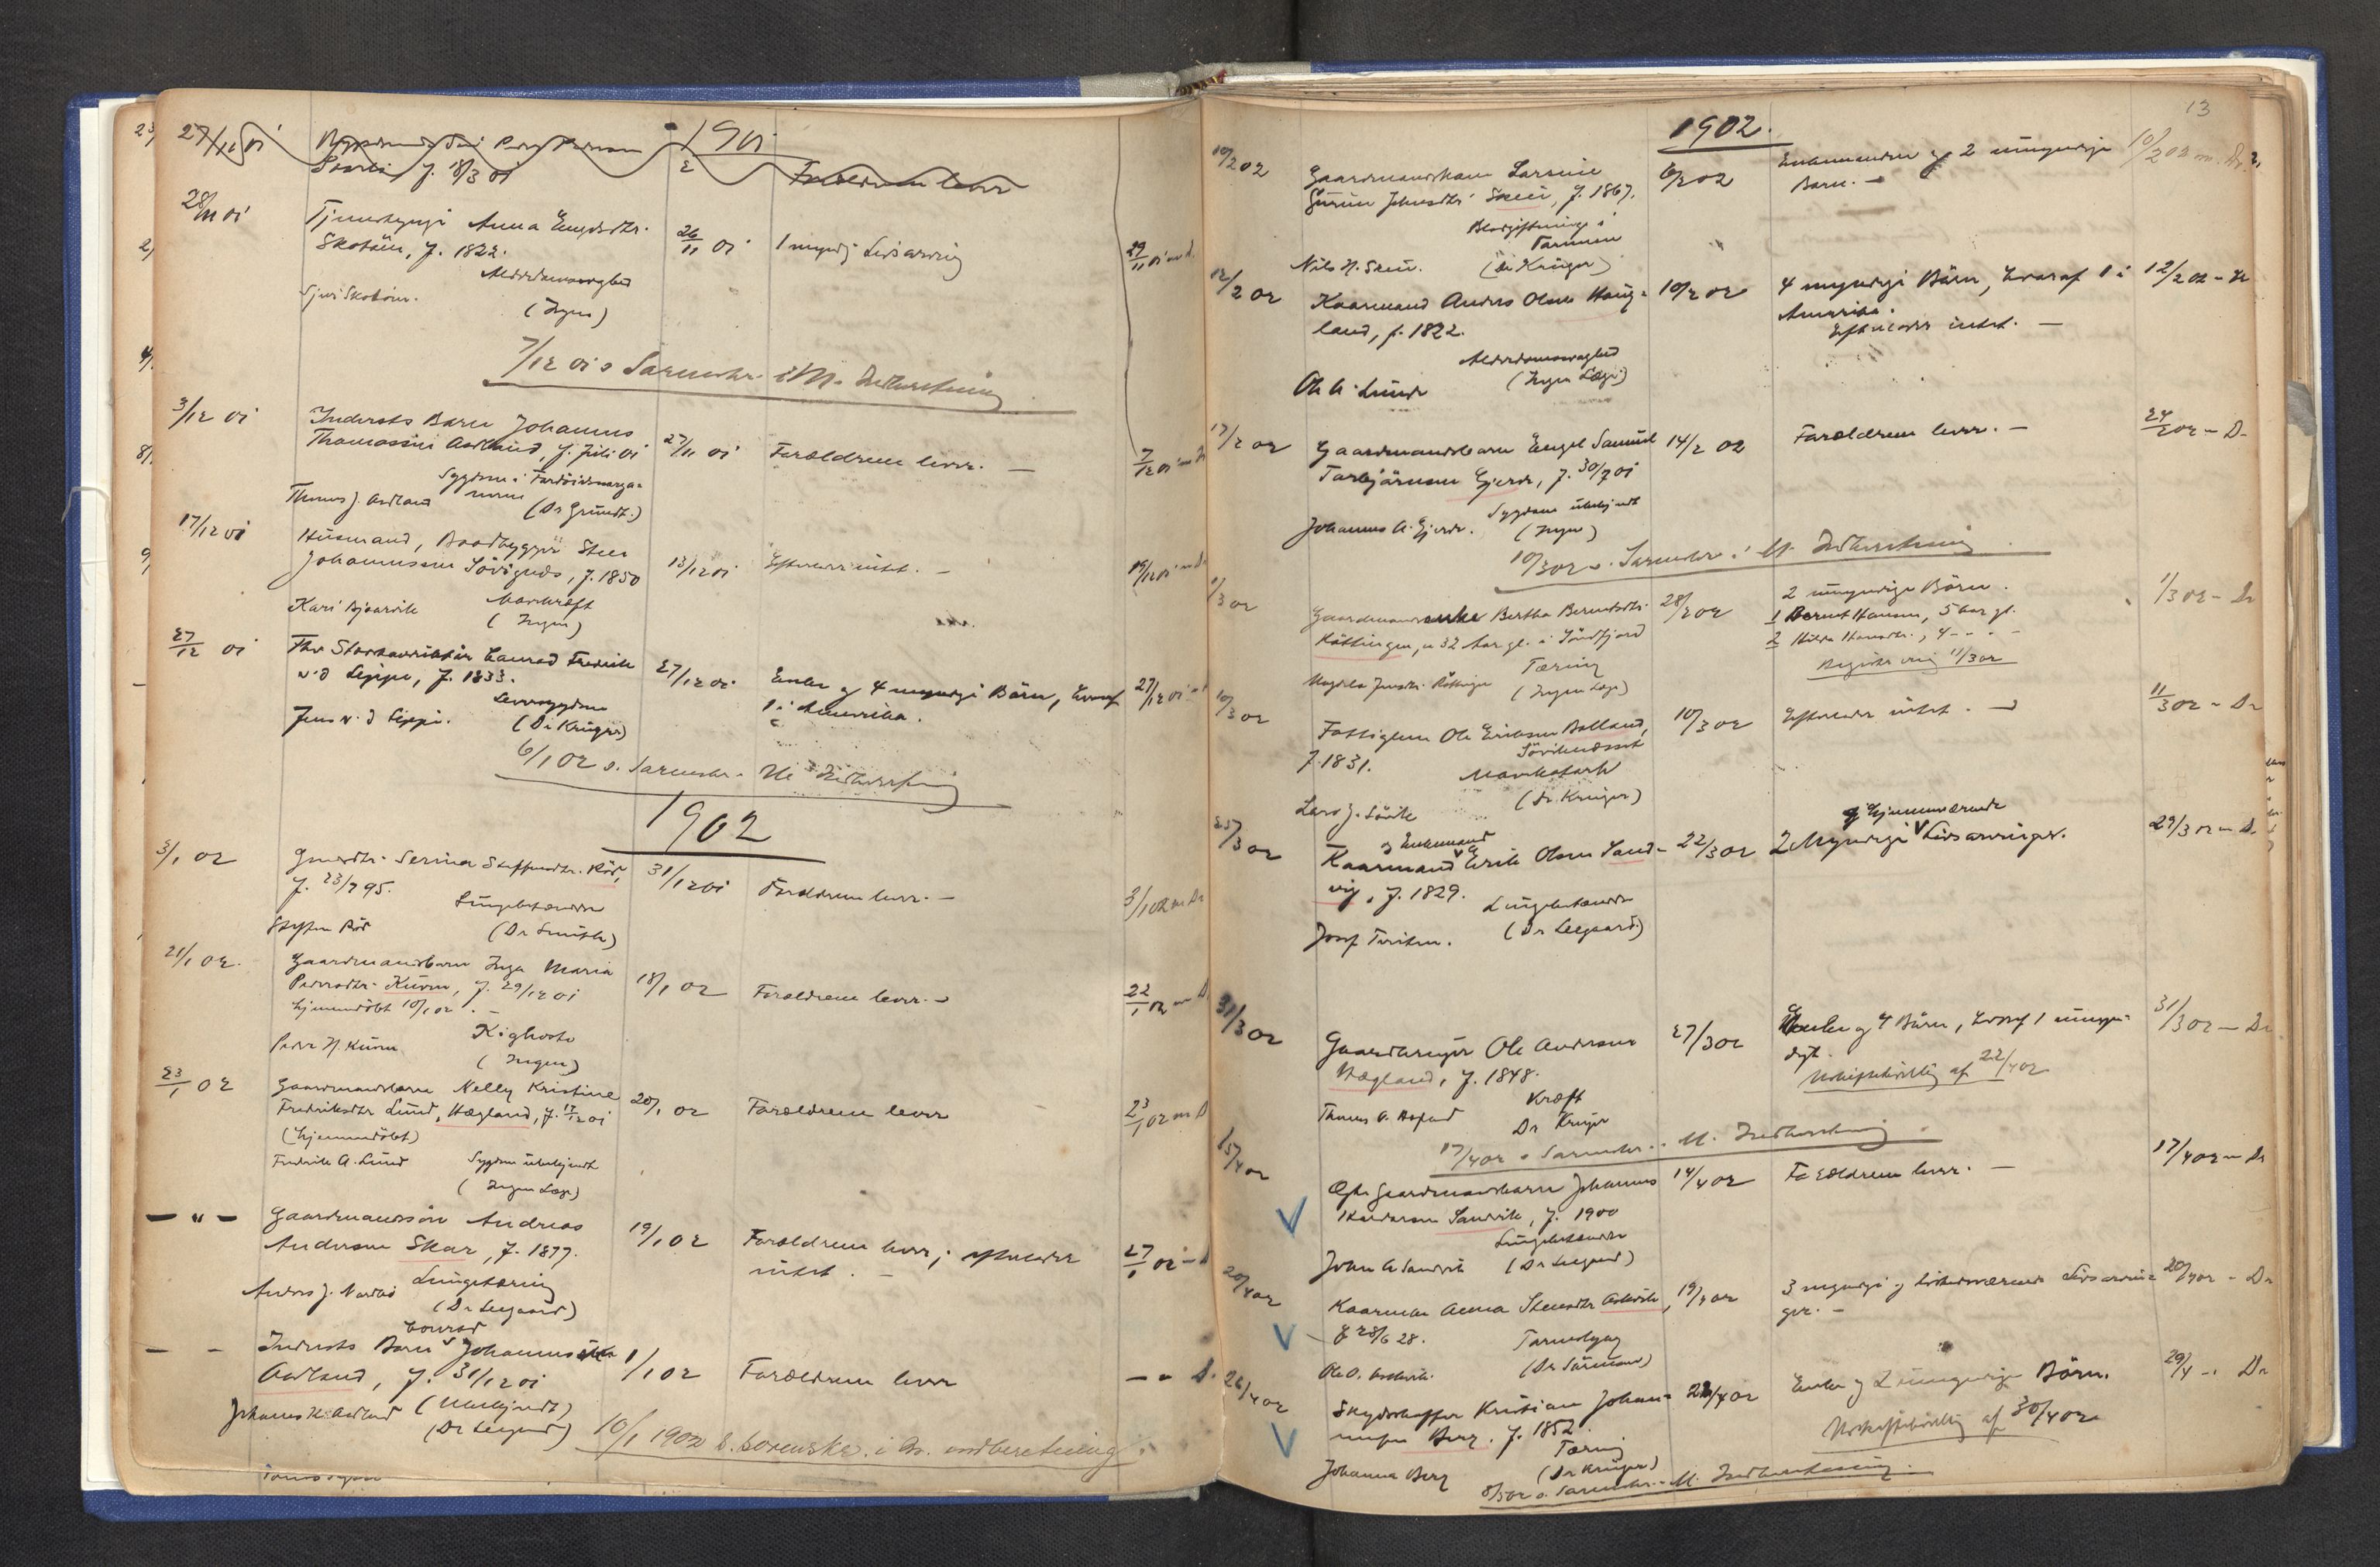 1901
27/11 01
f. 18/3 01
Forældrene lever
28/11 01 Anna
f. 1822. 26/11 01 1 myndig Livsarving 29/11 01 m D.
Alderdomssvaghed
(Ingen)
7/12 01 s. Sorenskr. i M. Indberetning
3/12 01 Indersts Barn Johannes
Thomassen Aadland, f. Juli 01 27/11 01 Forældrene lever. — 7/12 01 m D
Sygdom i Fordøielsesorga-
nerne
Thomas J. Aadland (Dr Grundt.)
17/12 01 Husmand, Baadbygger Sten
Johannesen Søvignæs, f. 1850 13/12 01 Efterlader intet. — 19/12 01 m D.
Kari Bjaarvik Mavekræft
(Ingen)
27/12 01 Fhv Conrad Fredrik
v. d Lippe, f. 1833. 27/12 01 Enke og 4 myndige Børn, hvoraf 27/12 01
1 i Amerika.
Leversygdom
Jens v. d Lippe. (Dr Krüger)
6/1 02 s. Sorenskr. Indberetning
1902
3/1 02 Serina Steffensdtr. Röd,
f. 23/7 95. 31/12 01 Forældrene lever. — 3/1 02 m D
Lungebetændelse
Steffen Röd (Dr Smith)
21/1 02. Gaardmandsbarn Inga Maria
Pedersdtr. Kuven, f. 29/12 01 18/1 02 Forældrene lever. — 22/1 02 m D
hjemmedøbt 10/1 02. —
Peder N. Kuven Kighoste
(Ingen)
23/1 02 Gaardmandsbarn Nelly Kristine
Fredriksdtr Lund, Hægland, f. 17/12 01 20/1 02 Forældrene lever 23/1 02 m D
(hjemmedøbt)
Fredrik A. Lund Sygdom ubekjendt
(Ingen Læge)
— " — Gaardmandssøn Andreas
Andersen Skar, f. 1877. 19/1 02 Forældrene lever; efterlader 27/1 02 — D
intet. —
Lungetæring
Anders J. (Dr Leegaard)
Conrad
— - Indersts Barn Johannessen
Aadland, f. 31/12 01 1/1 02 Forældrene lever — " D.
(Ubekjendt)
Johannes K. Aadland (Dr Leegaard)
10/1 1902 s. sorenskr. i M. indberetning
13
1902.
10/2 02 Gaardmandskone Larsine
Gurine Johnsdtr. Skeie, f. 1867. 6/2 02 Enkemanden og 2 umyndige 10/2 02 m. Dr.
Barn. —
Blodforgiftning i
Tarmene
Nils N. Skeie. (Dr Krüger)
12/2 02 Kaarmand Anders Olsen Haug-
land, f. 1822. 10/2 02 4 myndige Börn, hvoraf 1 i 12/2 02 -
Amerika.
Efterlader intet. —
Alderdomssvaghed
Ole A. Lunde (Ingen Læge)
17/2 02 Gaardmandsbarn Engel Samuel
Torbjörnsen Gjerde, f. 30/7 01 14/2 02 Forældrene lever. — 24/2 02 — D-
Sygdom ubekjendt
Johannes A. Gjerde. (Ingen)
10/3 02 s. Sorenskr. i M. Indberetning
1/3 02 Gaardmandsenke Bertha Berentsdtr.
Röttingen, 32 Aar gl. i Söndfjord 28/2 02 2 umyndige Börn. 1/3 02 - Dr
1 Berent Hansen, 5 Aar gl.
2 Hilda Hansdtr., 4 - . -
Registrering 11/3 02
Tæring
Magdela Jensdtr. Röttingen (Ingen Læge)
10/3 02 Fattiglem Ole Eriksen Bolland, 10/3 02 Efterlader intet. — 11/3 02 - Dr
Søvikneset
f 1831.
Mavekatarh
(Dr. Krüger)
Lars J. Sövik
og Enkemand og hjemmeværende
25/3 02 Kaarmand Erik Olsen Sand-
vig, f. 1829. 22/3 02 2 Myndige Livsarvinger. 29/3 02 — D.
Lungebetændelse
Josef (Dr Leegaard)
31/3 02 Gaardbruger Ole Andersen
Hægland, f. 1848. 27/3 02 Enke og 4 Börn, hvoraf 1 umyn- 31/3 02 — Dr
digt.
Uskiftebevilling af 22/4 02
Kræft
Thomas A. Dr Krüger
17/4 02 s Sorenskr. i M. Indberetning
15/4 02 Gaardmandsbarn Johannes
Sandvik, f. 1900 14/4 02 Forældrene lever. — 17/4 02 — Dr
Lungebetændelse
John A Sandvik (Dr Leegaard)
20/4 02 Kaarenke Anna Stensdtr Askvik, 19/4 02 3 myndige og tilstedeværende Livsarvin- 20/4 02 - Dr
ger. —
f 28/6 28. Tarmslyng
Ole O. Askvik. (Dr Sörman)
26/4 02 Skydsskaffer Kristian Johan-
nesen Berg. f. 1852. 23/4 02 Enke og 2 umyndige Börn. 29/4 - Dr
Uskiftebevilling af 30/4 02
Tæring
Johanna Berg (Dr Krüger)
8/5 02 s. Sorenskr. i M. Indberetning.